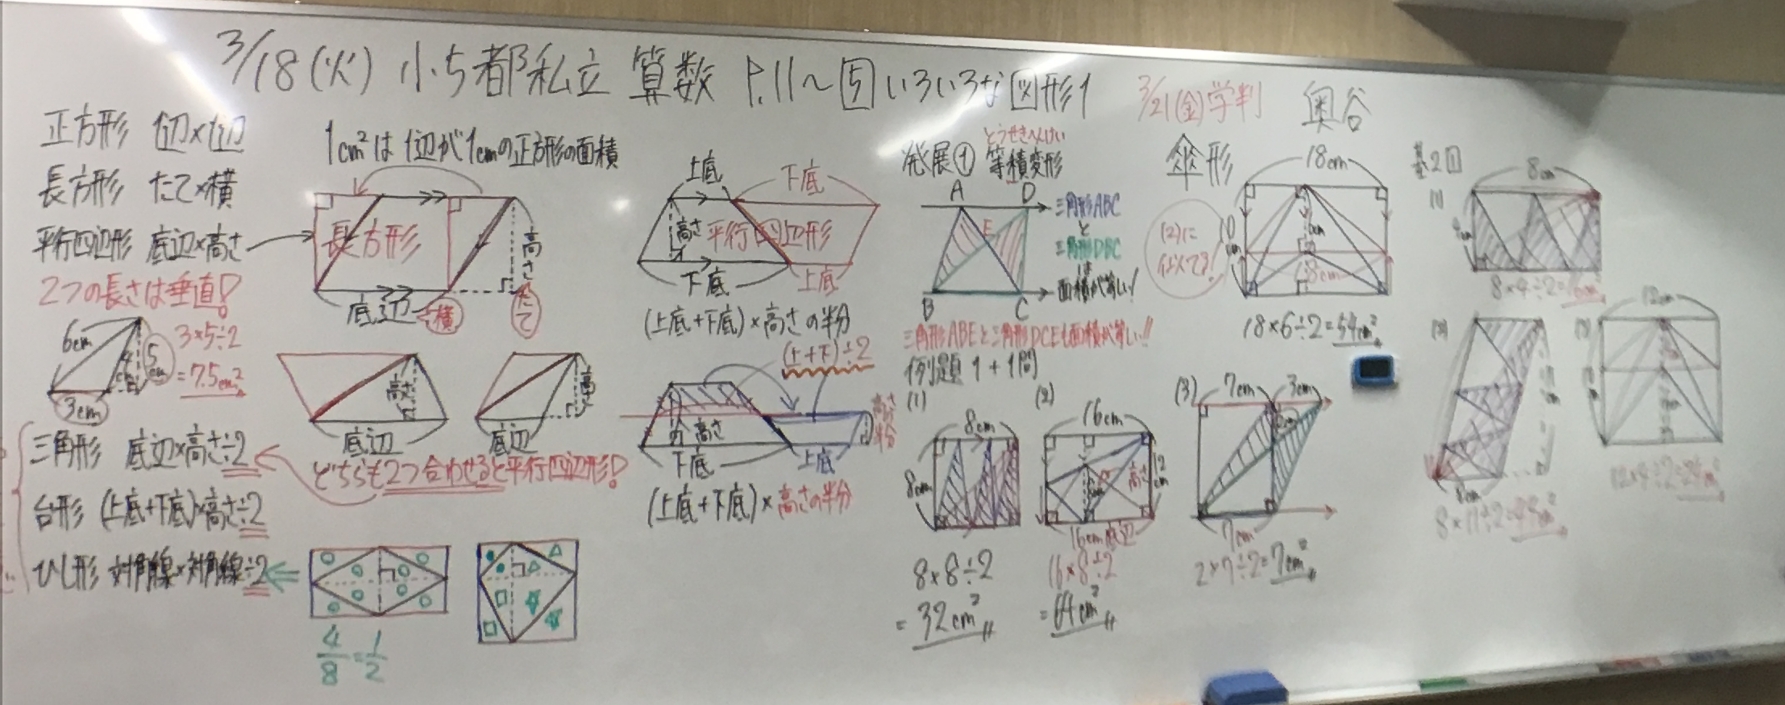 3/18(火) 小5都私立 算数 P.11〜5いろいろな図形1
3/21(金)学判
奥谷
正方形 1辺×1辺
長方形 たて×横
平行四辺形 底辺×高さ
2つの長さは垂直!
6cm
5cm
4cm
3cm
3×5÷2
=7.5cm²
三角形 底辺×高さ÷2
台形 (上底+下底)×高さ÷2
ひし形 対角線×対角線÷2
1cm²は1辺が1cmの正方形の面積
長方形
高さ
たて
底辺
横
高さ
底辺
高さ
底辺
どちらも2つ合わせると平行四辺形!
4/8=1/2
上底
下底
高さ
平行四辺形
下底
上底
(上底+下底)×高さの半分
(上+下)÷2
高さ
高さ半分
下底
上底
(上底+下底)×高さの半分
発展①
とうせきへんけい
等積変形
A
D
E
B
C
三角形ABC
と
三角形DBC
は
面積が等しい!
三角形ABEと三角形DCEも面積が等しい!!
例題1+1問
(1)
8cm
8cm
8×8÷2
=32cm²
(2)
16cm
高さ
12cm
16cm底辺
16×8÷2
=64cm²
(3)
7cm
3cm
2cm
7cm
2×7÷2=7cm²
傘形
18cm
6cm
18cm
18×6÷2=54cm²
基2
(1)
8cm
4cm
8×4÷2=16cm²
(2)
8cm
8×11÷2=44cm²
(3)
12cm
12×4÷2=24cm²